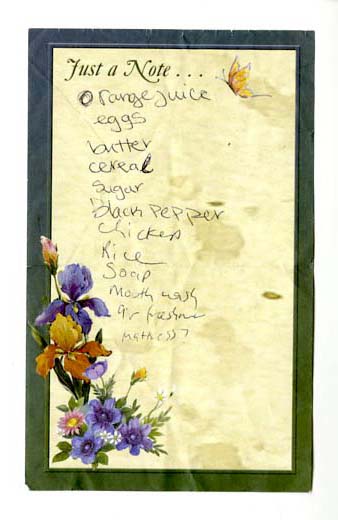 Just a Note . . .
Orange juice
eggs
butter
cereal
Sugar
Black pepper
Chicken
Rice
Soap
Mouth wash
air freshner